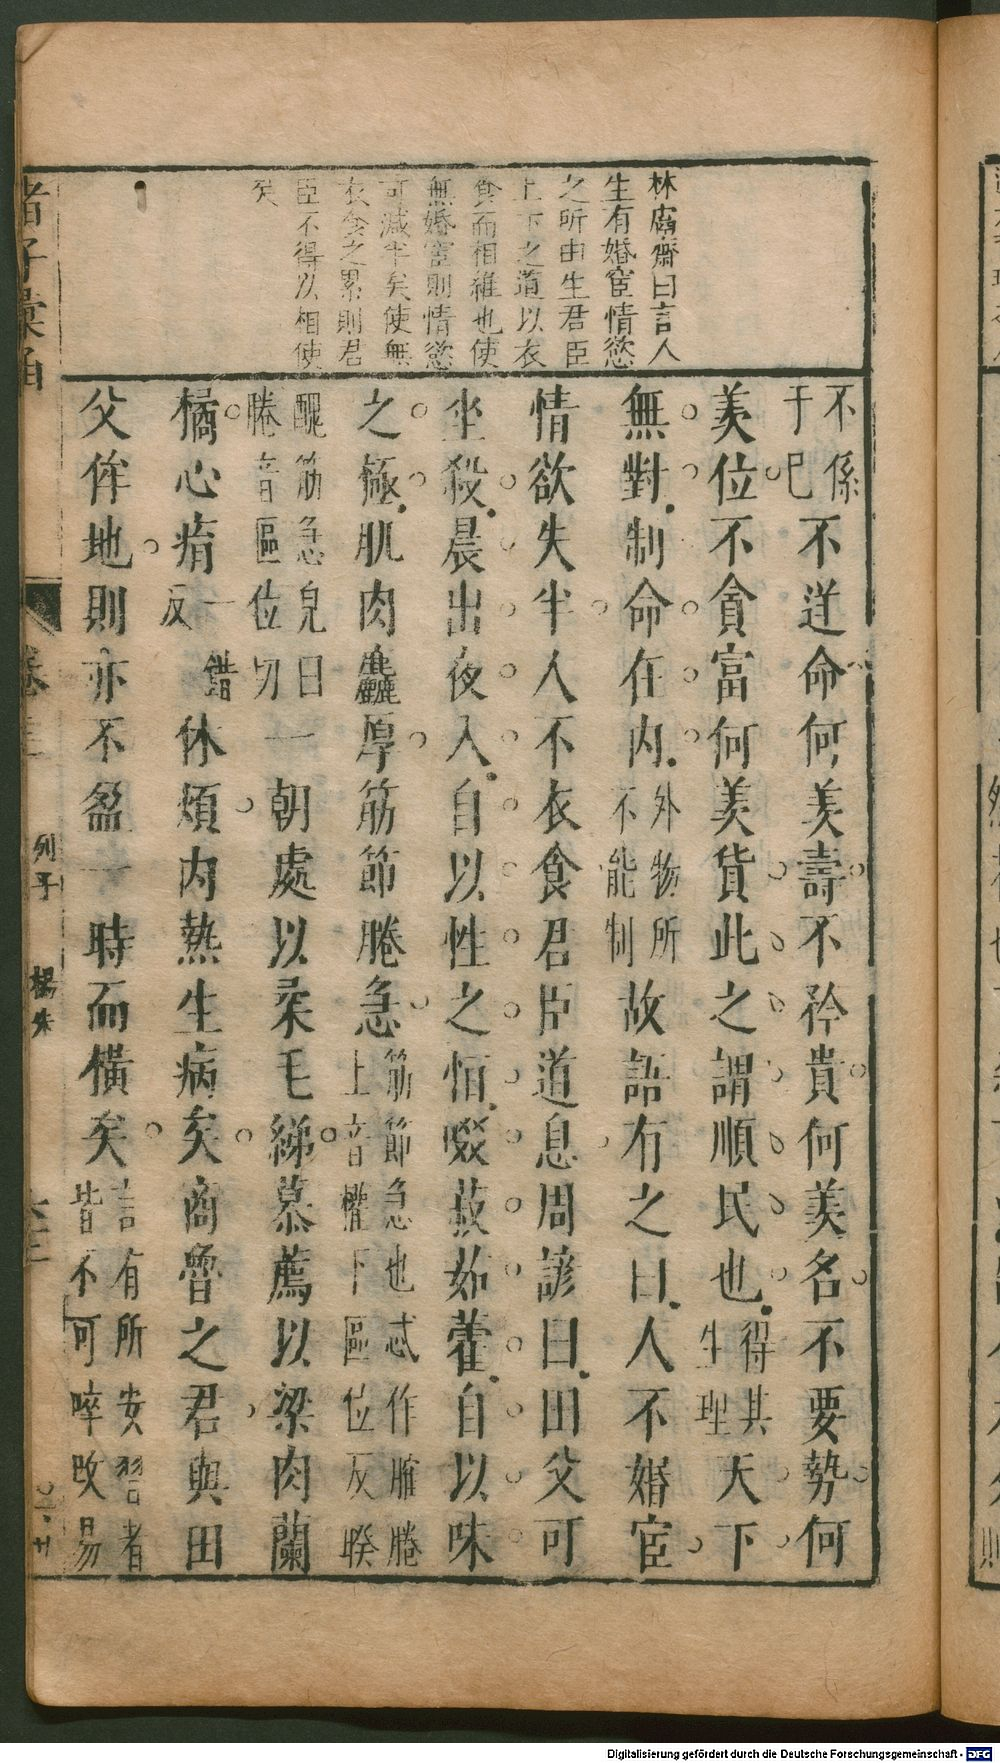 林鬳齋曰言人
生有婚宦情慾
之所由生君臣
上下之道以衣
食而相維也使
無婚宦則情慾
可減半矣使無
衣食之累則君
臣不得以相使
矣
不係
于己
不逆命何羡壽不矜貴何羡名不要勢何
羡位不貪富何羡貨此之謂順民也
得其
生理
天下
無對制命在內
外物所
不能制
故語有之曰人不婚宦
情欲失半人不衣食君臣道息周諺曰田父可
坐殺晨出夜入自以性之恒啜菽茹藿自以味
之極肌肉麤厚筋節腃急
筋節急也忒作䐧腃
上音權下區位反睽
醜筋急皃曰
腃音區位切
一朝處以柔毛綈慕薦以粱肉蘭
橘心痟
一
反
錯
休煩內熱生病矣商魯之君與田
父侔地則亦不盈一時而橫矣
言有所安習者
皆不可啐改易
諸子彙函
卷
列子
楊朱
Digitalisierung gefördert durch die Deutsche Forschungsgemeinschaft - DFG